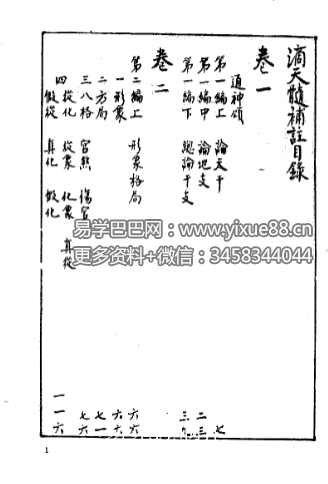 滴天髓補註目錄
卷一
通神頌
第一編上 論天干 七
第一編中 論地支 二三
第一編下 總論干支 三九
卷二
第二編上 形象格局 六六
一形象 六六
二方局 七一
三八格 官煞 傷官 七六
四從化 從象 化象 真從 一一六
假從 真化 假化
易学巴巴网：www.yixue88.cn
更多资料+微信：3458344044
1